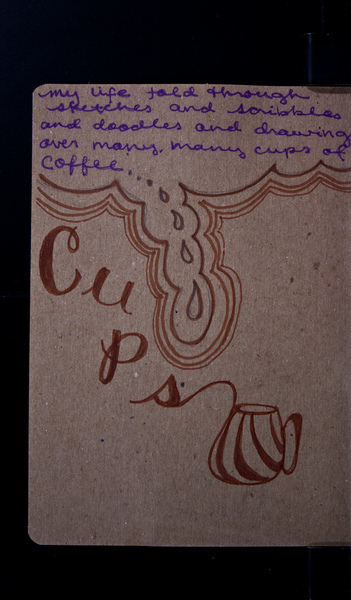 my life told through
sketches and scribbles
and doodles and drawing
over many, many cups of
coffee....
Cups